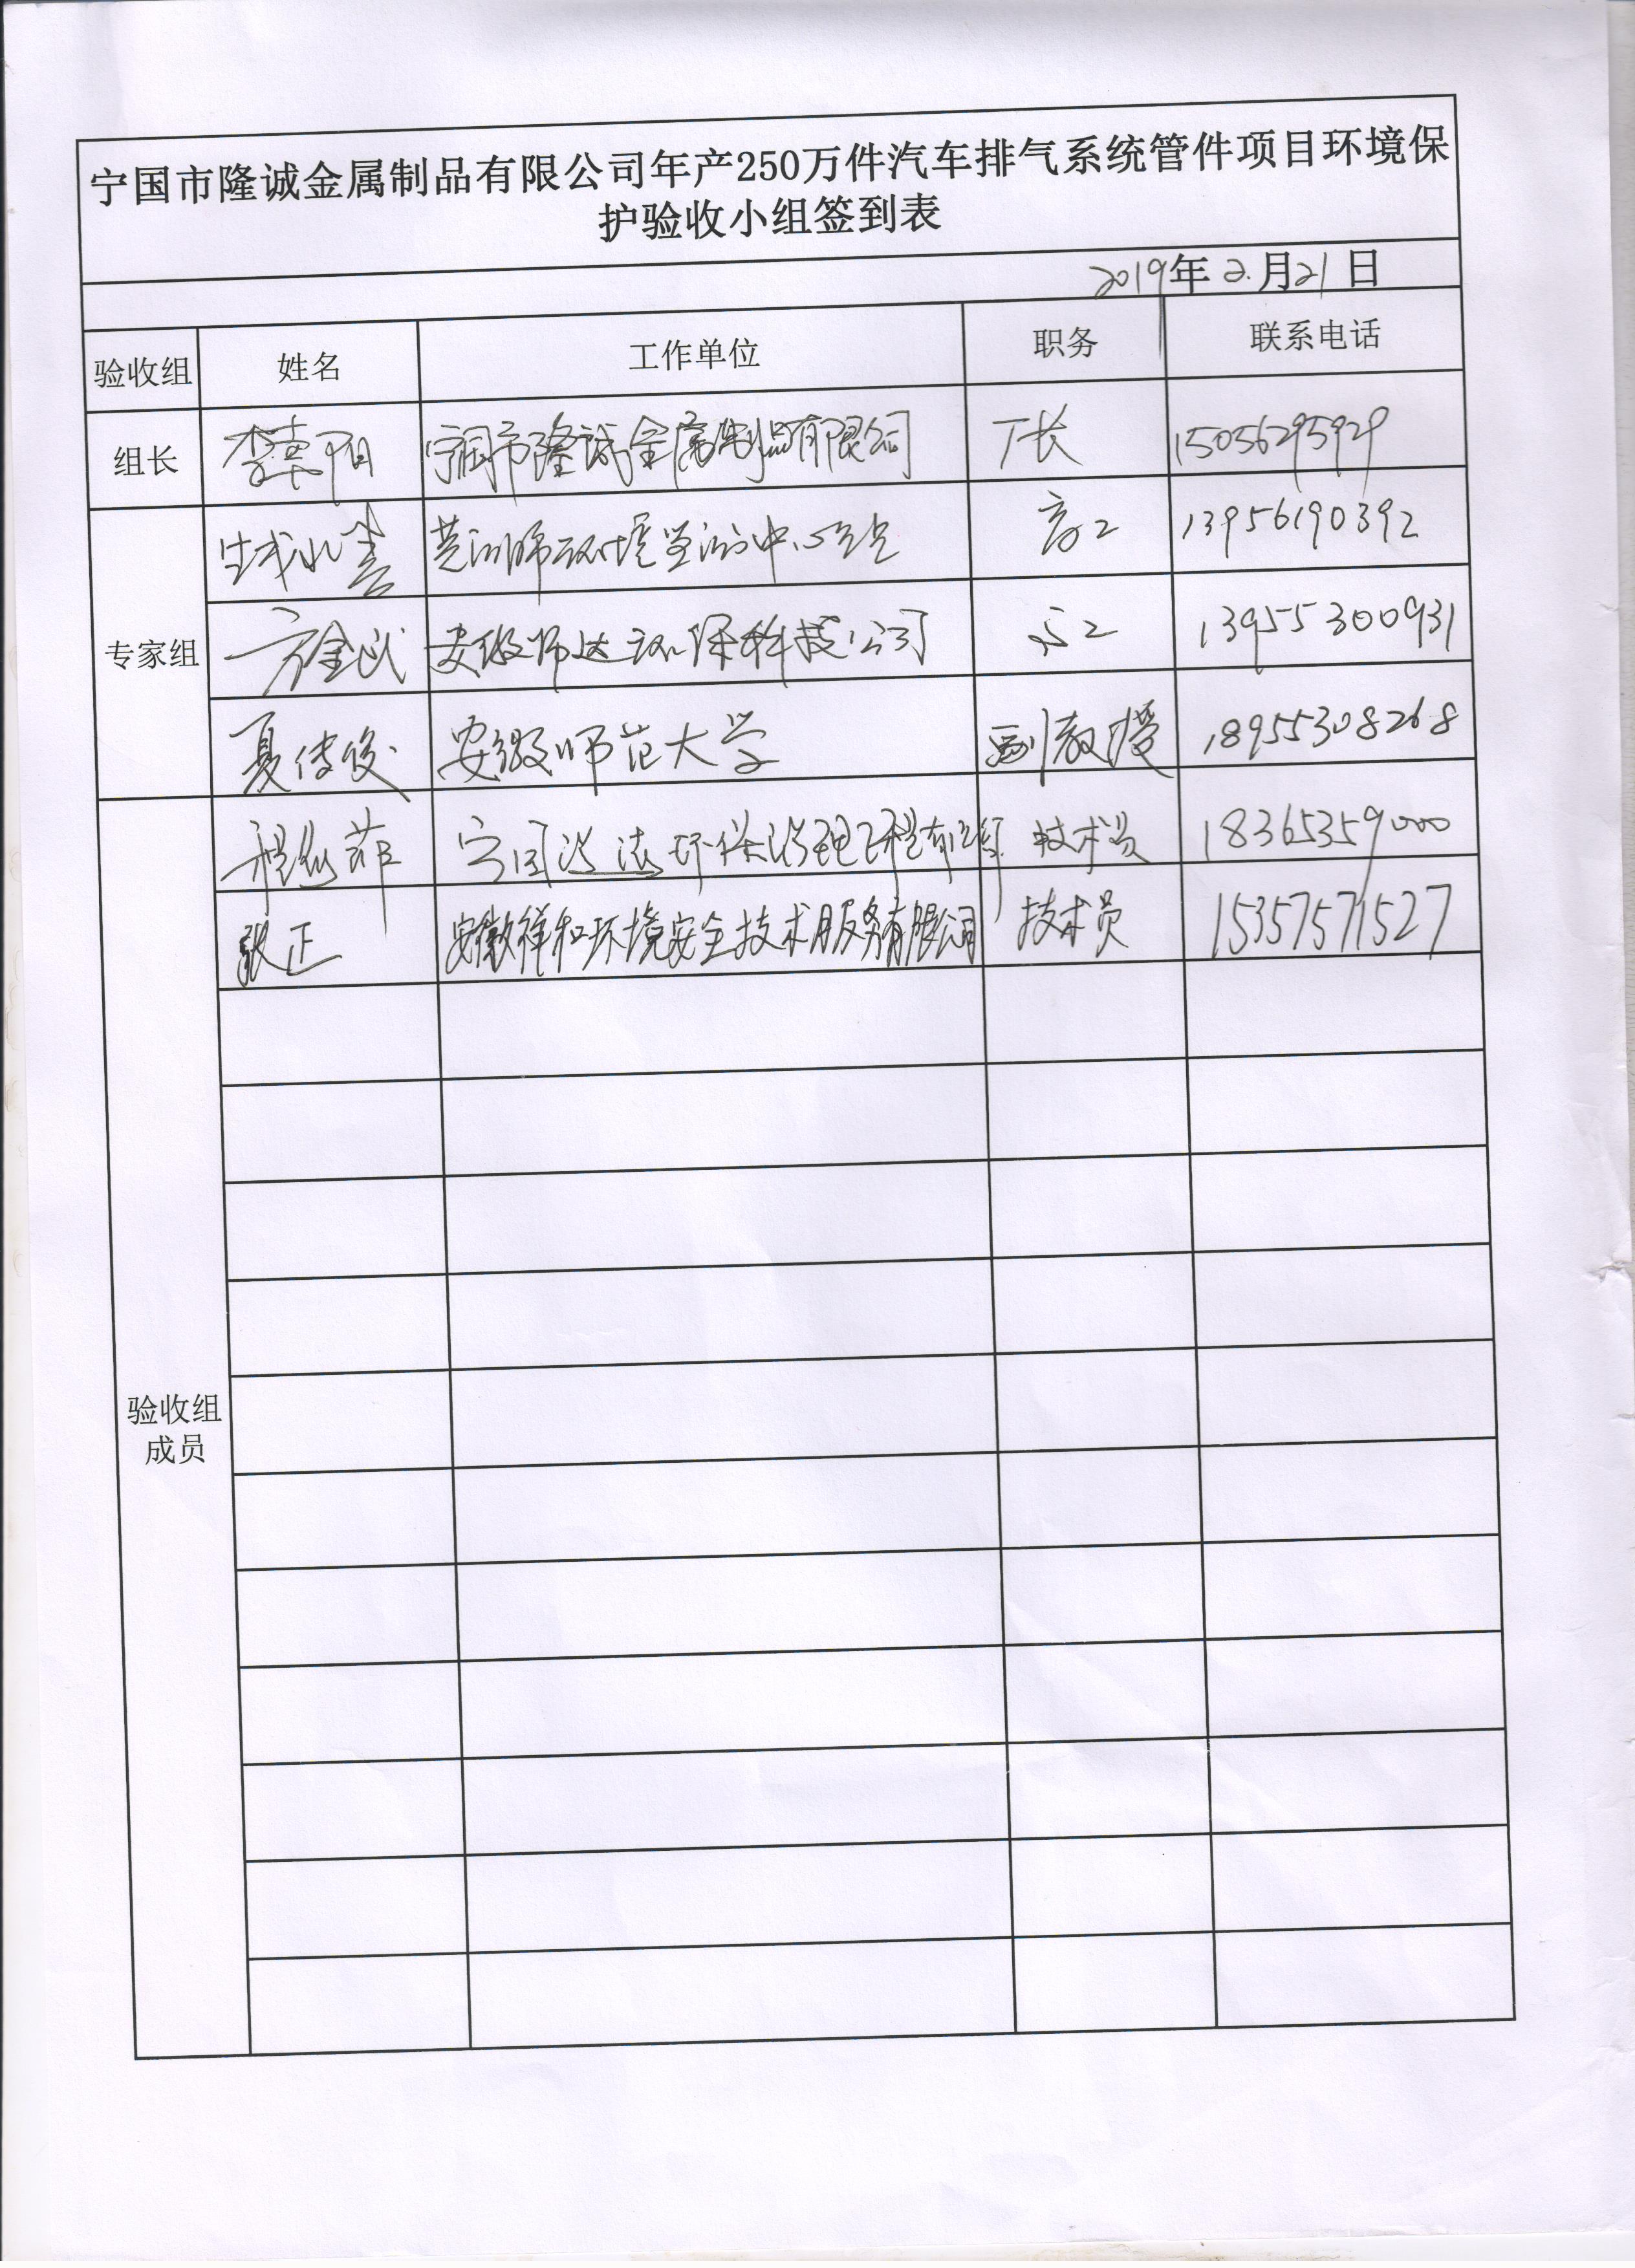 宁国市隆诚金属制品有限公司年产250万件汽车排气系统管件项目环境保
护验收小组签到表
2019年2.月21日
验收组 姓名 工作单位 职务 联系电话
组长 李 阳 宁国市隆诚金属制品有限公司 厂长 15056295929
芜湖市环境监测中心站 高工 13956190392
专家组 方金武 安徽师达环保科技公司 高工 13955300931
夏传俊 安徽师范大学 副教授 18955308268
程 菲 宁国 环保 有限公司 技术员 18365359000
张正 安徽祥和环境安全技术服务有限公司 技术员 15357571527
验收组
成员